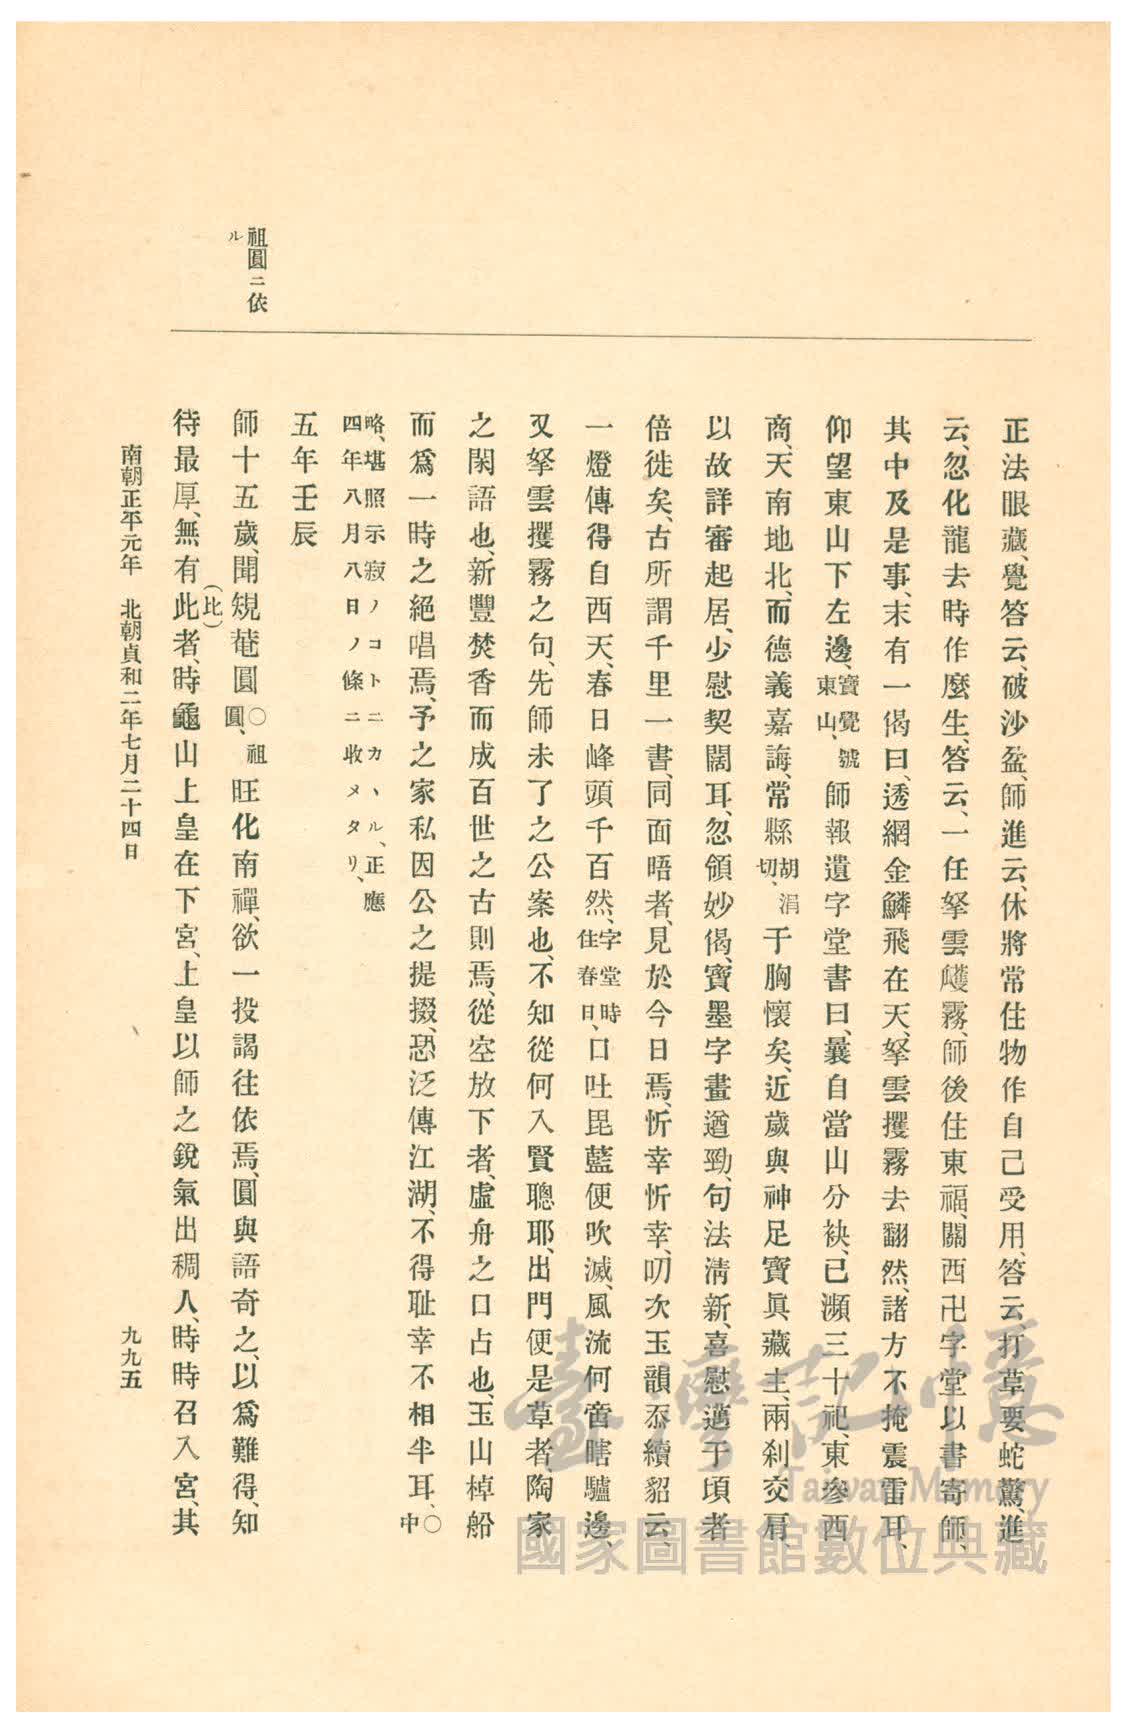 正法眼藏、覺答云、破沙盆、師進云、休將常住物作自己受用、答云、打草要蛇驚、進
云、忽化龍去時作麼生、答云、一任拏雲攫霧、師後住東福、關西卍字堂以書寄師、
其中及是事、末有一偈曰、透網金鱗飛在天、拏雲攫霧去翻然、諸方不掩震雷耳、
仰望東山下左邊、寶覺號東山、師報遺字堂書曰、曩自當山分袂、已瀕三十祀、東參西
商、天南地北、而德義嘉誨、常縣胡涓切、于胸懷矣、近歲與神足寶眞藏主、兩刹交肩、
以故詳審起居、少慰契闊耳、忽領妙偈、寶墨字畫遒勁、句法淸新、喜慰邁于頃者
倍徙矣、古所謂千里一書、同面晤者、見於今日焉、忻幸忻幸、叨次玉韻、忝續貂云、
一燈傳得自西天、春日峰頭千百然、字堂時住春日、口吐毘藍便吹滅、風流何啻瞎驢邊、
又拏雲攫霧之句、先師未了之公案也、不知從何入賢聰耶、出門便是草者、陶家
之閑語也、新豐焚香而成百世之古則焉、從空放下者、虛舟之口占也、玉山棹船
而爲一時之絕唱焉、予之家私因公之提掇、恐泛傳江湖、不得耻幸不相半耳、○中
略、堪照示寂ノコトニカヽル、正應四年八月八日ノ條ニ收メタリ、
五年壬辰
祖圓ニ依ル
師十五歲、聞規菴圓○祖圓、旺化南禪、欲一投謁往依焉、圓與語奇之、以爲難得、知
待最厚、無有此(比)者、時龜山上皇在下宮、上皇以師之銳氣出稠人、時時召入宮、其
南朝正平元年　北朝貞和二年七月二十四日
九九五
臺灣記憶
Taiwan Memory
國家圖書館數位典藏